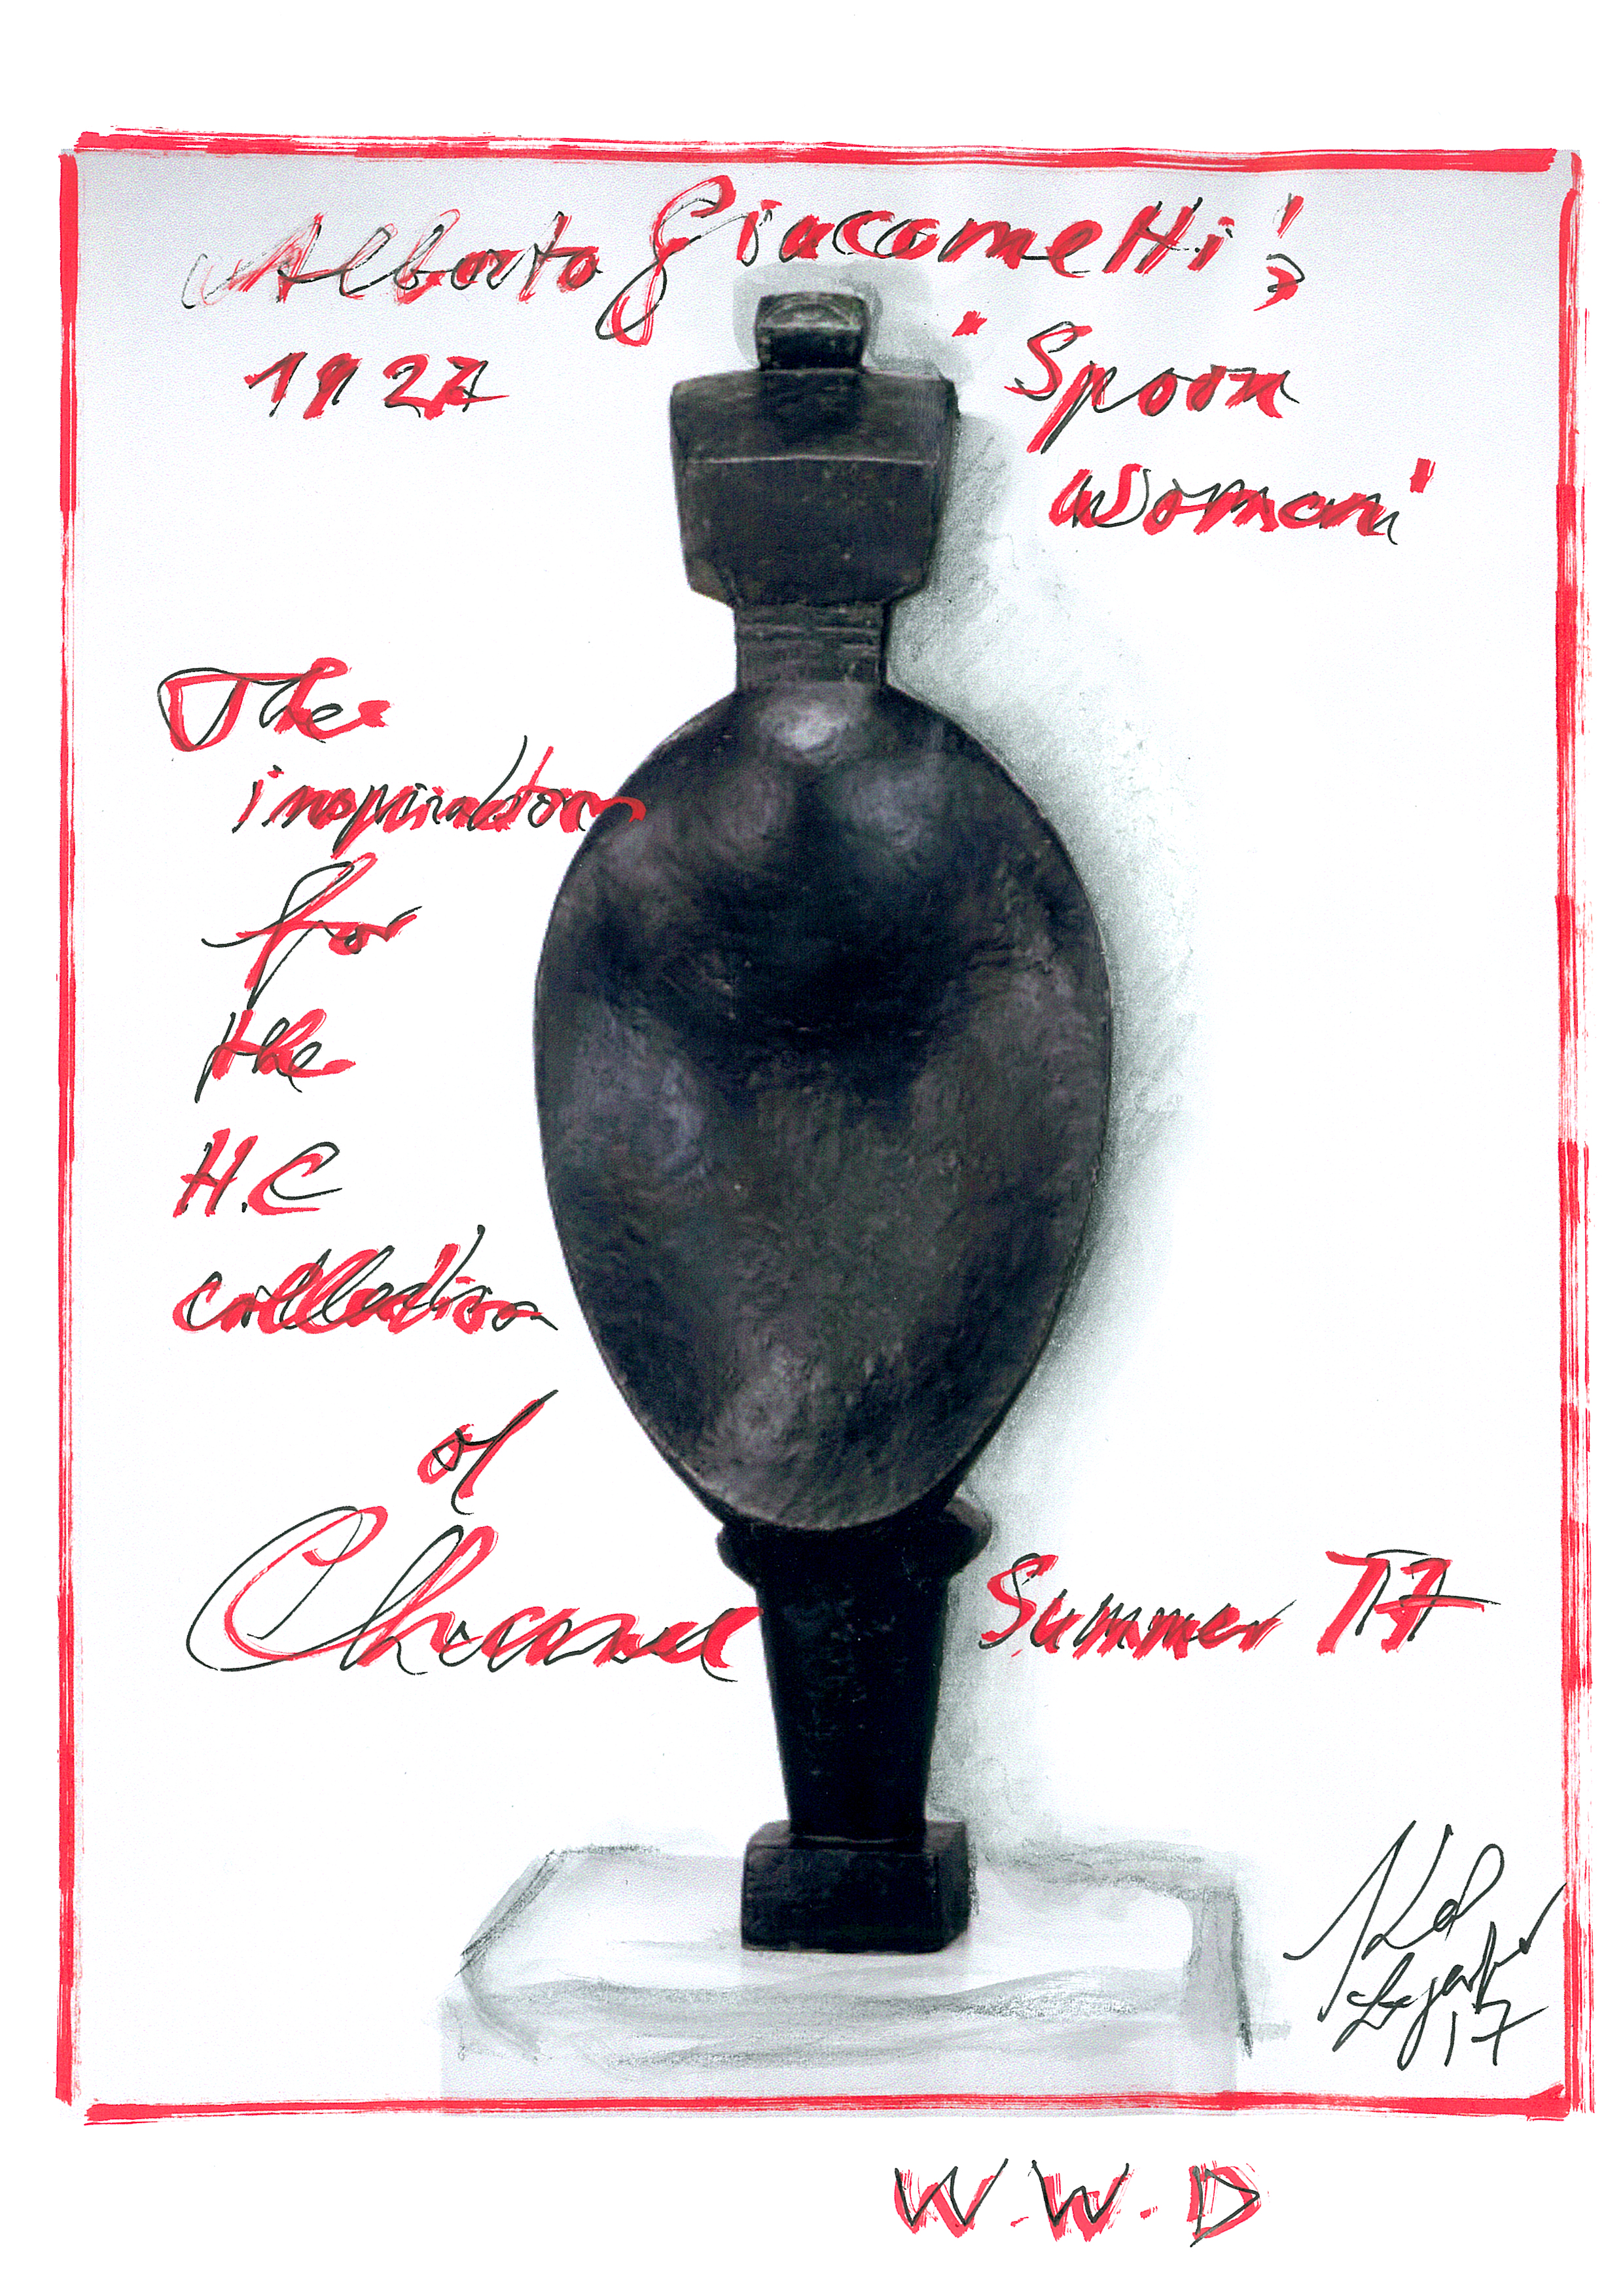 Alberto Giacometti's
1927
'Spoon
Woman'
The
inspiration
for
the
H.C
collection
of
Chanel Summer 17
Karl
Lagerfeld
17
W.W.D